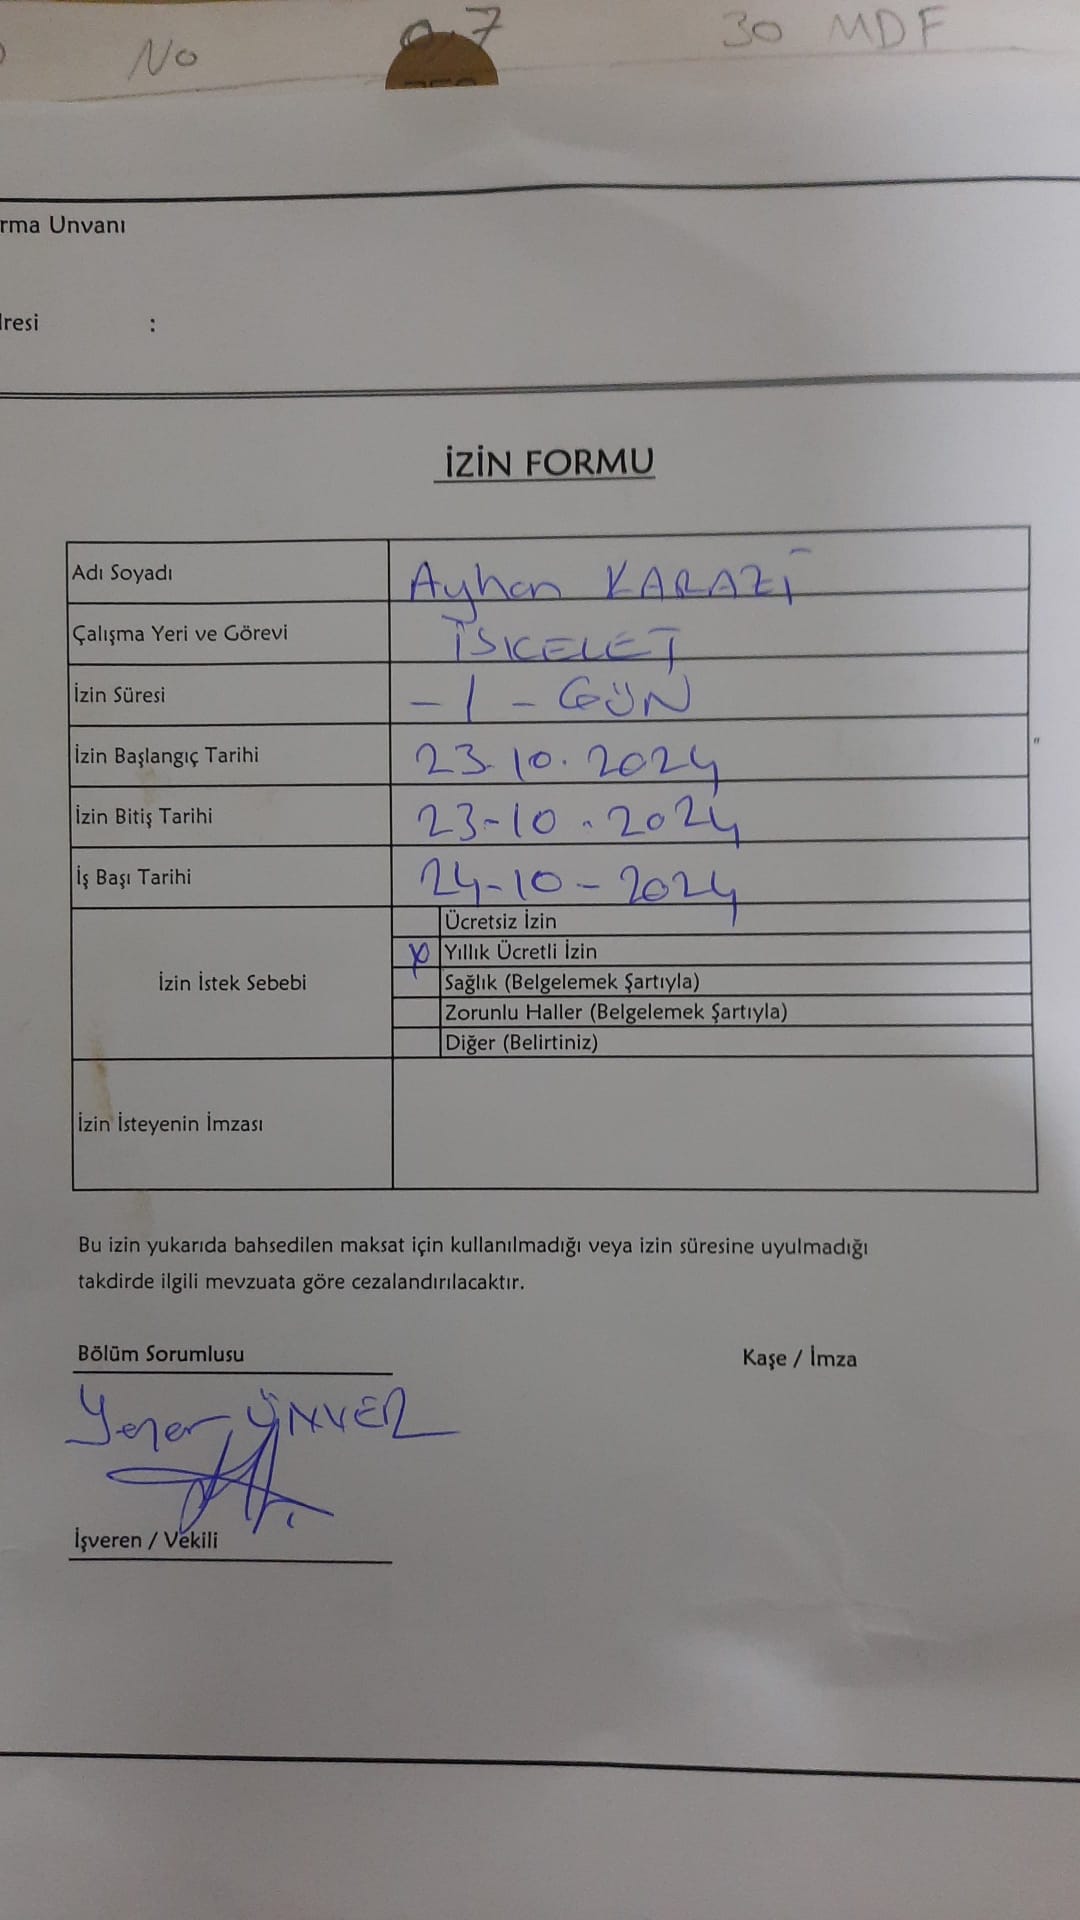 No 0,7 30 MDF
rma Unvanı
resi :
İZİN FORMU
Adı Soyadı Ayhan KARAZİ
Çalışma Yeri ve Görevi İSKELET
İzin Süresi - 1 - GÜN
İzin Başlangıç Tarihi 23.10.2024
İzin Bitiş Tarihi 23-10.2024
İş Başı Tarihi 24-10-2024
İzin İstek Sebebi
Ücretsiz İzin
X Yıllık Ücretli İzin
Sağlık (Belgelemek Şartıyla)
Zorunlu Haller (Belgelemek Şartıyla)
Diğer (Belirtiniz)
İzin İsteyenin İmzası
Bu izin yukarıda bahsedilen maksat için kullanılmadığı veya izin süresine uyulmadığı
takdirde ilgili mevzuata göre cezalandırılacaktır.
Bölüm Sorumlusu Kaşe / İmza
ÜNVER
İşveren / Vekili